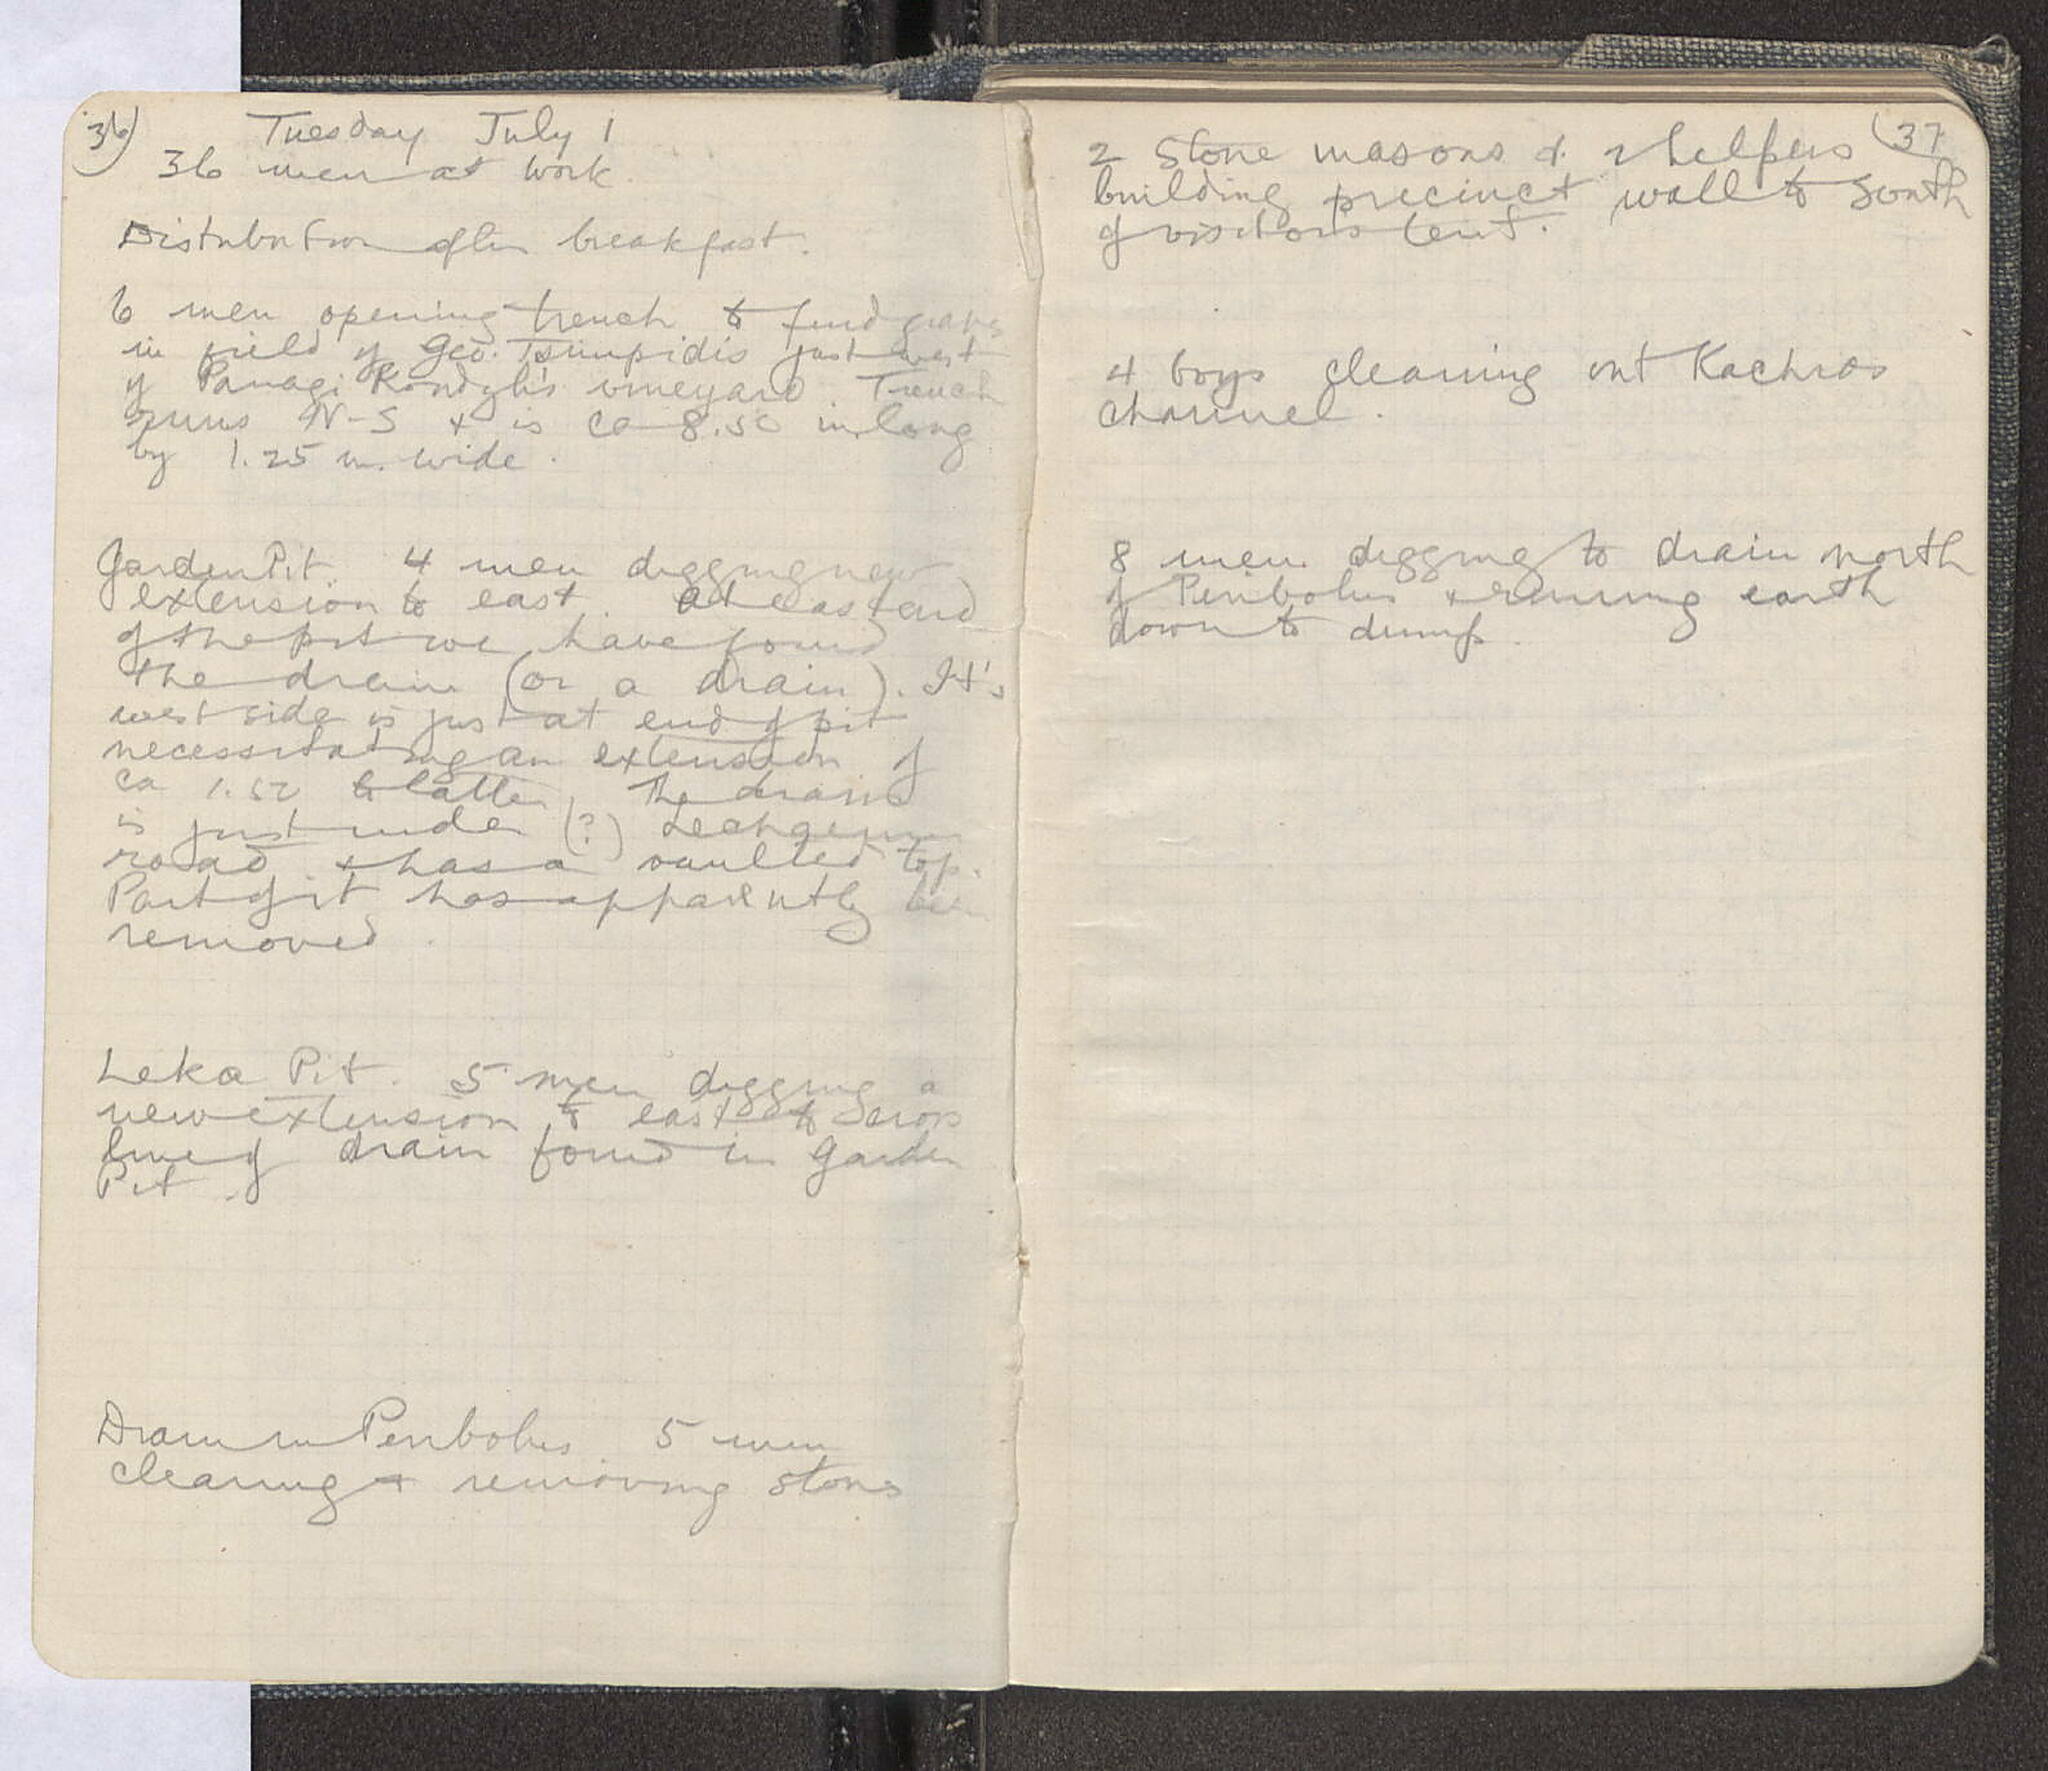 36)
Tuesday July 1
36 men at work.
Distribution after breakfast.
6 men opening trench to find graves
in field of Geo. Tsimpidis just west
of Panagi Kondyli's vineyard. Trench
runs N-S + is ca 8.50 m. long
by 1.25 m. wide.
Garden Pit. 4 men digging new
extension to east. At east end
of the pit we have found
the drain (or a drain). It's
west side is just at end of pit
necessitating an extension of
ca 1.50 to latter. The drain
is just under (?)
road + has a vaulted top.
Part of it has apparently been
removed.
Leka Pit. 5 men digging a
new extension to east to
line of drain found in Garden
Pit.
Drain in Peribolus 5 men
clearing + removing stones
(37
2 stone masons & 2 helpers
building precinct wall to south
of visitors tent.
4 boys cleaning out Kachros
channel.
8 men digging to drain north
of Peribolus + running earth
down to dump.